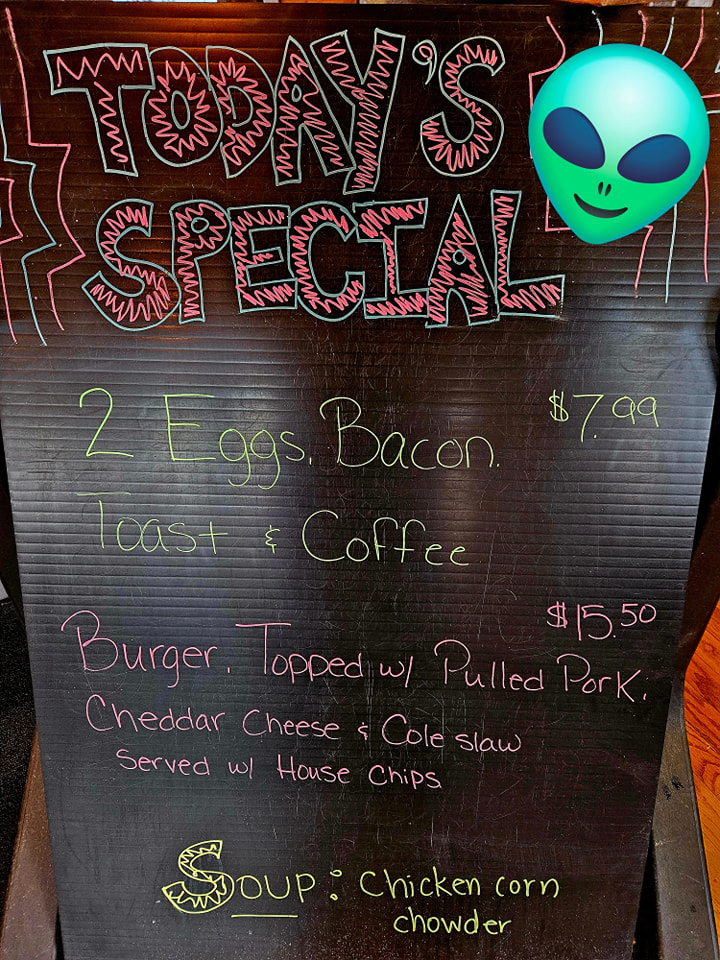 TODAY'S
SPECIAL
2 Eggs, Bacon, $7.99
Toast & Coffee
$15.50
Burger, Topped w/ Pulled Pork,
Cheddar Cheese & Cole slaw
Served w/ House Chips
Soup: Chicken corn
chowder